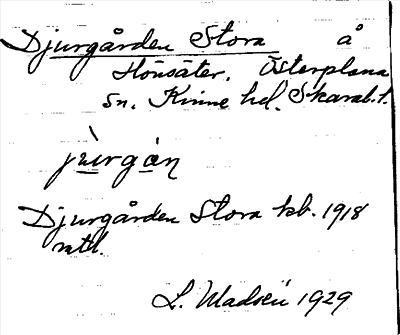 Djurgården Stora å
Hönsäter, Österplana
sn. Kinne hd. Skarab. l.
jùrgån
Djurgården Stora kb. 1918
mtl.
L. Madsén 1929